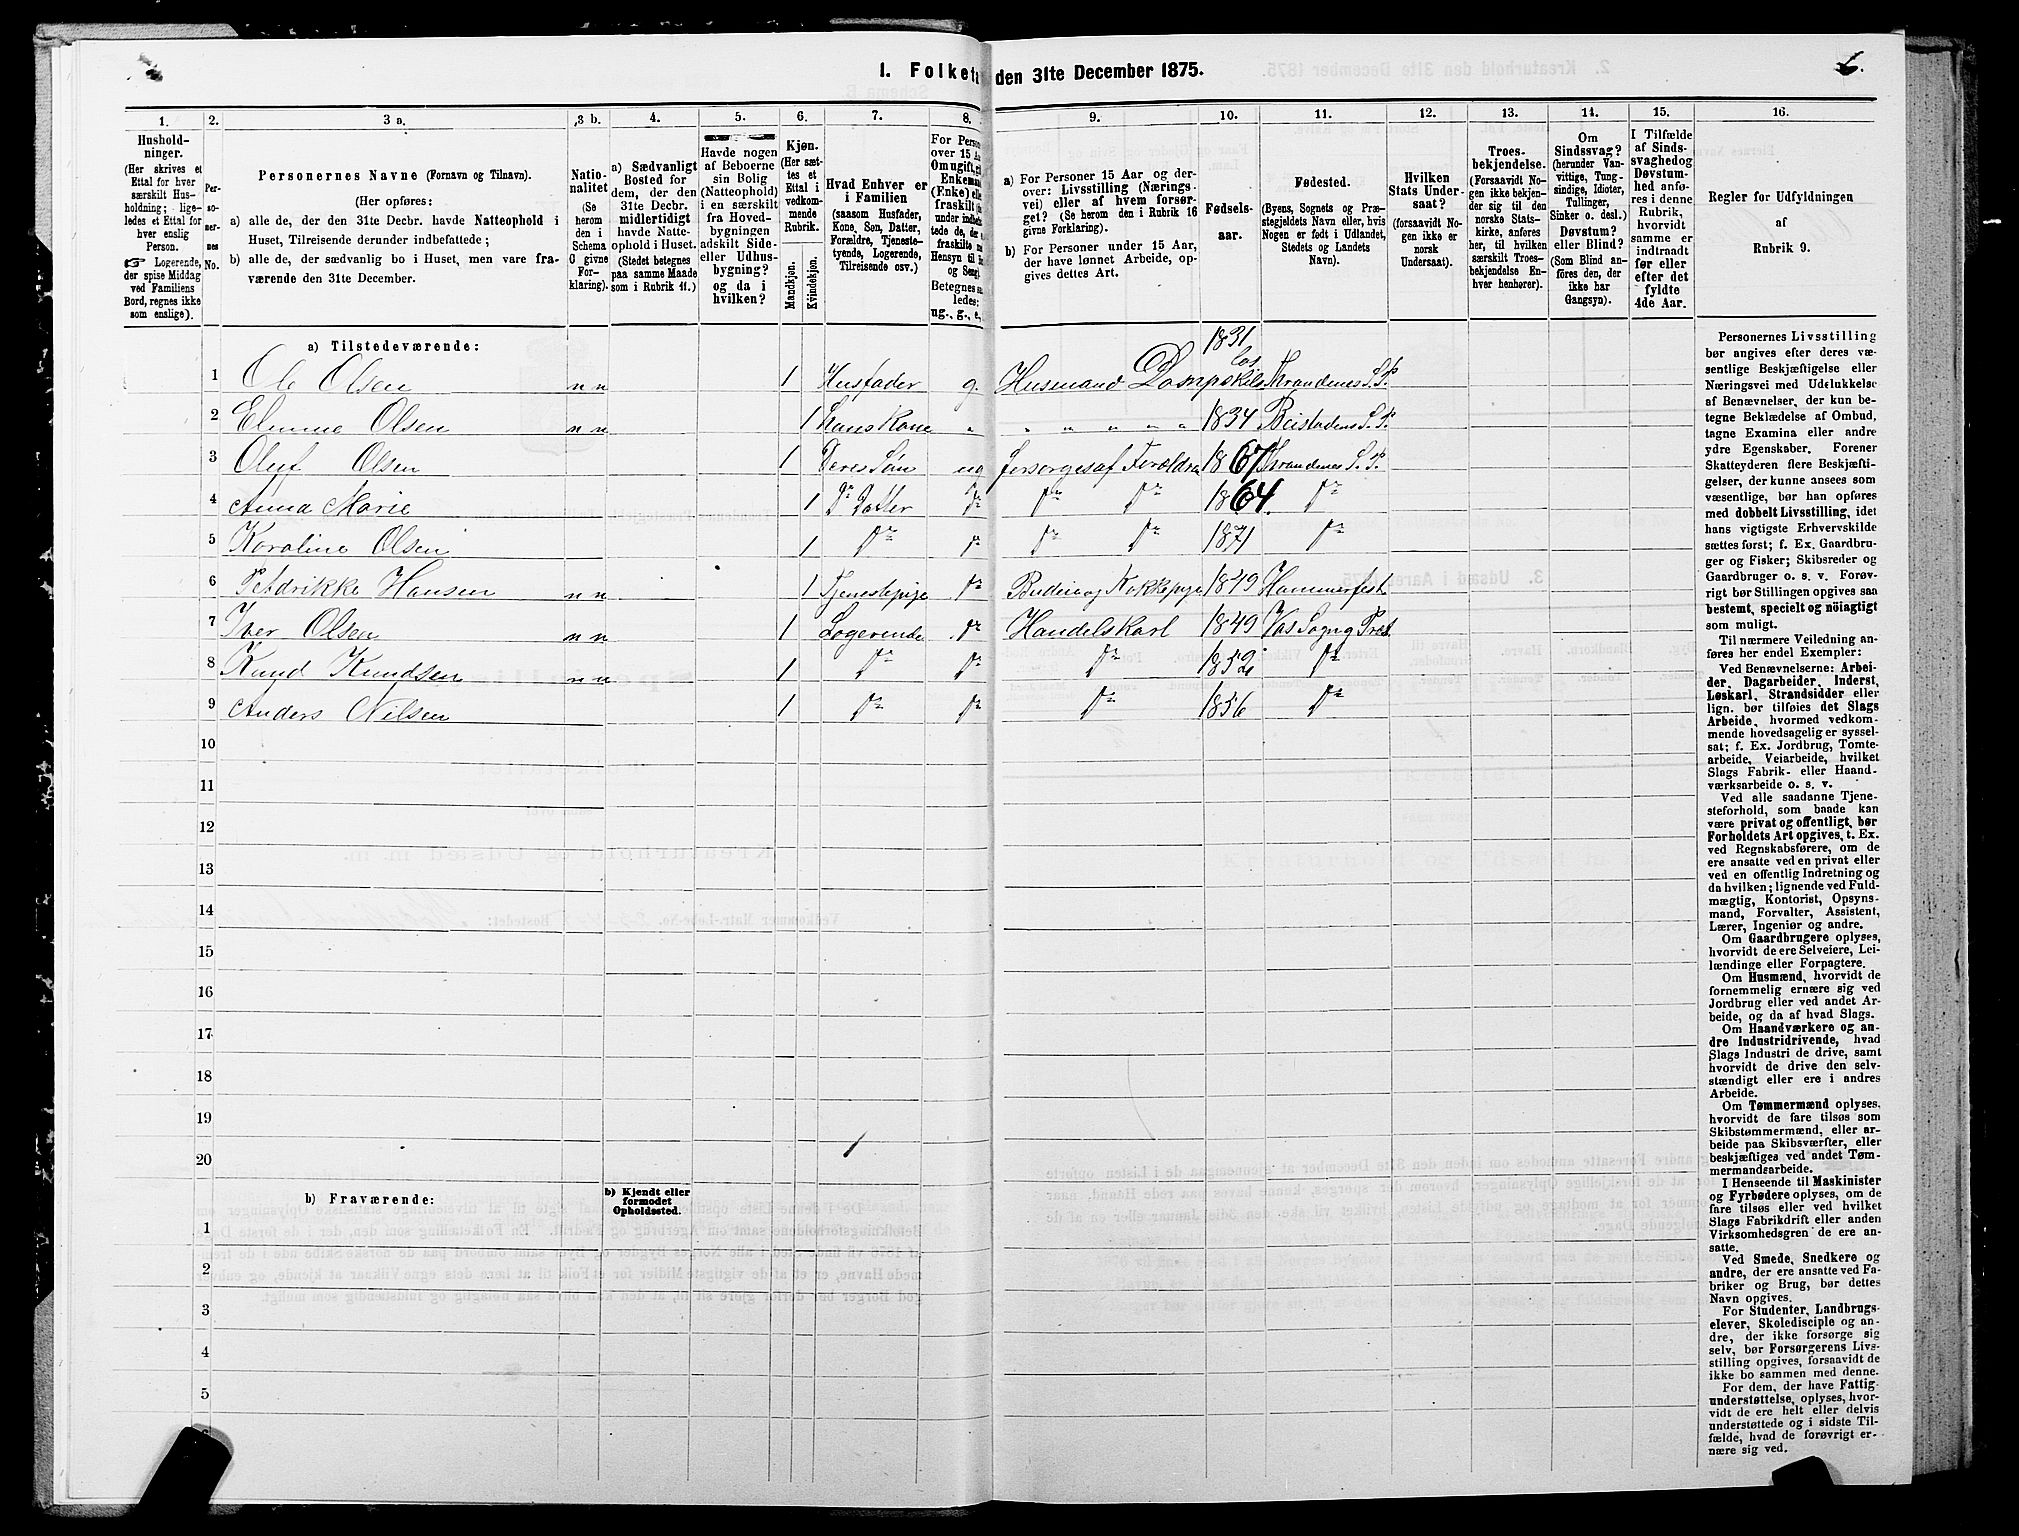 1. Folketæ den 31te December 1875.
6.
1.
2.
3 a.
3 b.
4.
5.
6.
7.
8.
9.
10.
11.
12.
13.
14.
15.
16.
Hushold-
ninger.
(Her skrives et
Ettal for hver
særskilt Hus-
holdning; lige-
ledes et Ettal for
hver enslig
Person.
☞ Logerende,
der spise Middag
ved Familiens
Bord, regnes ikke
som enslige).
Per-
so-
ner-
nes
No.
Personernes Navne (Fornavn og Tilnavn).
(Her opføres:
a) alle de, der den 31te Decbr. havde Natteophold i
Huset, Tilreisende derunder indbefattede;
b) alle de, der sædvanlig bo i Huset, men vare fra-
værende den 31te December.
Natio-
nalitet
(Se
herom
den i
Schema
C givne
For-
klaring).
a) Sædvanligt
Bosted for
dem, der den
31te Decbr.
midlertidigt
havde Natte-
ophold i Huset.
(Stedet betegnes
paa samme Maade
som i Rubrik 11.)
Havde nogen
af Beboerne
sin Bolig
(Natteophold)
i en særskilt
fra Hoved-
bygningen
adskilt Side-
eller Udhus-
bygning?
og da i
hvilken?
Kjøn.
(Her sæt-
tes et
Ettal i
vedkom-
mende
Rubrik.
Mandkjøn.
Kvindekjøn.
Hvad Enhver er
i Familien
(saasom Husfader,
Kone, Søn, Datter,
Forældre, Tjeneste-
tyende, Logerende,
Tilreisende osv.)
For Perso
over 15 Aa
Omugift, gi
Enkeman
(Enke) elle
fraskilt o
under indbe
tede de, der
fraskilte
Hensyn til
og Seng
Betegnes
ledes:
ug., g., e.,
a) For Personer 15 Aar og der-
over: Livsstilling (Nærings-
vei) eller af hvem forsør-
get? (Se herom den i Rubrik 16
givne Forklaring).
b) For Personer under 15 Aar,
der have lønnet Arbeide, op-
gives dettes Art.
Fødsels-
aar.
Fødested.
(Byens, Sognets og Præ-
stegjeldets Navn eller, hvis
Nogen er født i Udlandet,
Stedets og Landets
Navn).
Hvilken
Stats Under-
saat?
(forsaavidt No-
gen ikke er
norsk
Undersaat).
Troes-
bekjendelse.
(Forsaavidt No-
gen ikke bekjen-
der sig til den
norske Stats-
kirke, anføres
her, til hvilken
særskilt Troes-
bekjendelse En-
hver henhører).
Om
Sindssvag?
(herunder Van-
vittige, Tung-
sindige, Idioter,
Tullinger,
Sinker o. desl.)
Døvstum?
eller Blind?
(Som Blind an-
føres den, der
ikke har
Gangsyn).
I Tilfælde
af Sinds-
svaghedog
Døvstum-
hed anfø-
res i denne
Rubrik,
hvorvidt
samme er
indtraadt
før eller
efter det
fyldte
4de Aar.
Regler for Udfyldningen
af
Rubrik 9.
a) Tilstedeværende:
1 Ole Olsen n n 1 Husfader g. Husmand Dampskibs los 1831 Thrandenes S. P.
2 Olsen n n 1 Hans Kone " " " " " " 1834 Beistadens S. P.
3 Oluf Olsen 1 Deres Søn ug Forsorges af Forældre 1867 Thrandenes S. P.
4 Anna Marie 1 Do Datter Do Do Do 1864. Do
5 Karoline Olsen 1 Do Do Do Do 1871 Do
6 Hansen n n 1 Tjenestepige Do Budeie og Kokkepige 1849 Hammerfest
7 Iver Olsen n n 1 Logerende Do Handelskarl 1849 Vos Sogn g Præst
8 Knud Knudsen n n 1 Do Do Do 1852 Do
9 Anders Nilsen 1 Do Do Do 1856 Do
10
11
12
13
14
15
16
17
18
19
20
b) Fraværende:
b) Kjendt eller
formodet
Opholdssted.
1
2
3
4
5
Personernes Livsstilling
bør angives efter deres væ-
sentlige Beskjæftigelse eller
Næringsvei med Udelukkelse
af Benævnelser, der kun be-
tegne Beklædelse af Ombud,
tagne Examina eller andre
ydre Egenskaber. Forener
Skatteyderen flere Beskjæfti-
gelser, der kunne ansees som
væsentlige, bør han opføres
med dobbelt Livsstilling, idet
hans vigtigste Erhvervskilde
sættes først; f. Ex. Gaardbru-
ger og Fisker; Skibsreder og
Gaardbruger o. s. v. Forøv-
rigt bør Stillingen opgives saa
bestemt, specielt og nøiagtigt
som muligt.
Til nærmere Veiledning an-
føres her endel Exempler:
Ved Benævnelserne: Arbei-
der, Dagarbeider, Inderst,
Løskarl, Strandsidder eller
lign. bør tilføies det Slags
Arbeide, hvormed vedkom-
mende hovedsagelig er syssel-
sat; f. Ex. Jordbrug, Tomte-
arbeide, Veiarbeide, hvilket
Slags Fabrik- eller Haand-
værksarbeide o. s. v.
Ved alle saadanne Tjene-
steforhold, som baade kan
være privat og offentligt, bør
Forholdets Art opgives, t. Ex.
ved Regnskabsførere, om de
ere ansatte ved en privat eller
ved en offentlig Indretning og
da hvilken; lignende ved Fuld-
mægtig, Kontorist, Opsyns-
mand, Forvalter, Assistent,
Lærer, Ingeniør og andre.
Om Gaardbrugere oplyses,
hvorvidt de ere Selveiere, Lei-
lændinge eller Forpagtere.
Om Husmænd, hvorvidt de
fornemmelig ernære sig ved
Jordbrug eller ved andet Ar-
beide, og da af hvad Slags.
Om Haandværkere og an-
dre Industridrivende, hvad
Slags Industri de drive, samt
hvorvidt de drive den selv-
stændigt eller ere i andres
Arbeide.
Om Tømmermænd oplyses,
hvorvidt de fare tilsøs som
Skibstømmermænd, eller ar-
beide paa Skibsværfter, eller
beskjæftiges ved andet Tøm-
mermandsarbeide.
I Henseende til Maskinister
og Fyrbødere oplyses, om de
fare tilsøs eller ved hvilket
Slags Fabrikdrift eller anden
Virksomhedsgren de ere an-
satte.
Ved Smede, Snedkere og
andre, der ere ansatte ved Fa-
briker og Brug, bør dettes
Navn opgives.
For Studenter, Landbrugs-
elever, Skoledisciple og an-
dre, der ikke forsørge sig
selv, bør Forsørgerens Livs-
stilling opgives, forsaavidt de
ikke bo sammen med denne.
For dem, der have Fattig-
understøttelse, oplyses, hvor-
vidt de ere helt eller delvis
understøttede og i sidste Til-
fælde, hvad de forøvrigt er-
nære sig ved.